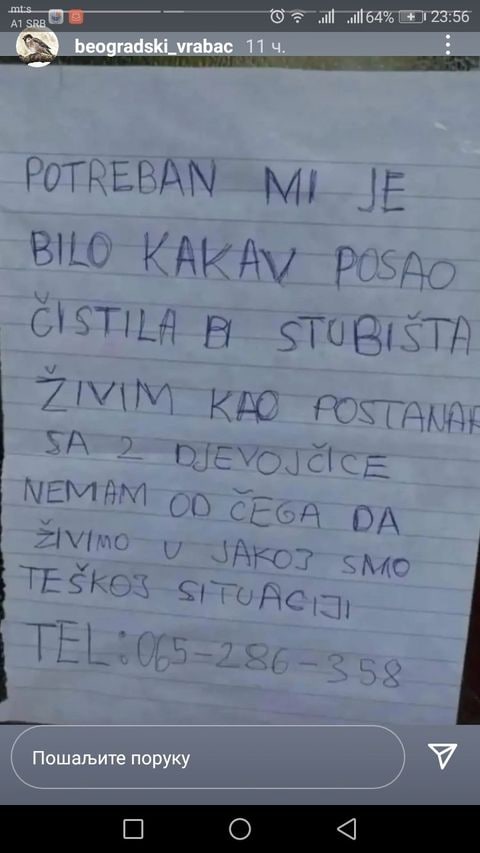 mt:s
A1 SRB
64% 23:56
beogradski_vrabac 11 ч.
POTREBAN MI JE
BILO KAKAV POSAO
ČISTILA BI STUBIŠTA
ŽIVIM KAO POSTANAR
SA 2 DJEVOJČICE
NEMAM OD ČEGA DA
ŽIVIMO U JAKOJ SMO
TEŠKOJ SITUACIJI
TEL:065-286-358
Пошаљите поруку